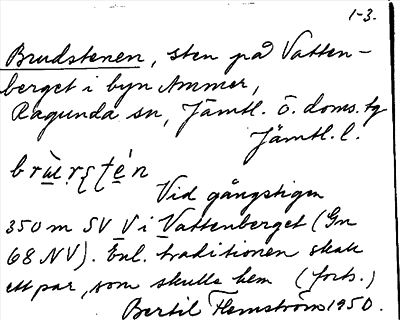 1-3.
Brudstenen, sten på Vatten-
berget i byn Ammer,
Ragunda sn, Jämtl. ö. doms. tg
Jämtl. l.
Vid gångstigen
350 m SV V i Vattenberget (Gn
68 NV). Enl. traditionen skall
ett par, som skulle hem (forts.)
Bertil Flemström 1950.